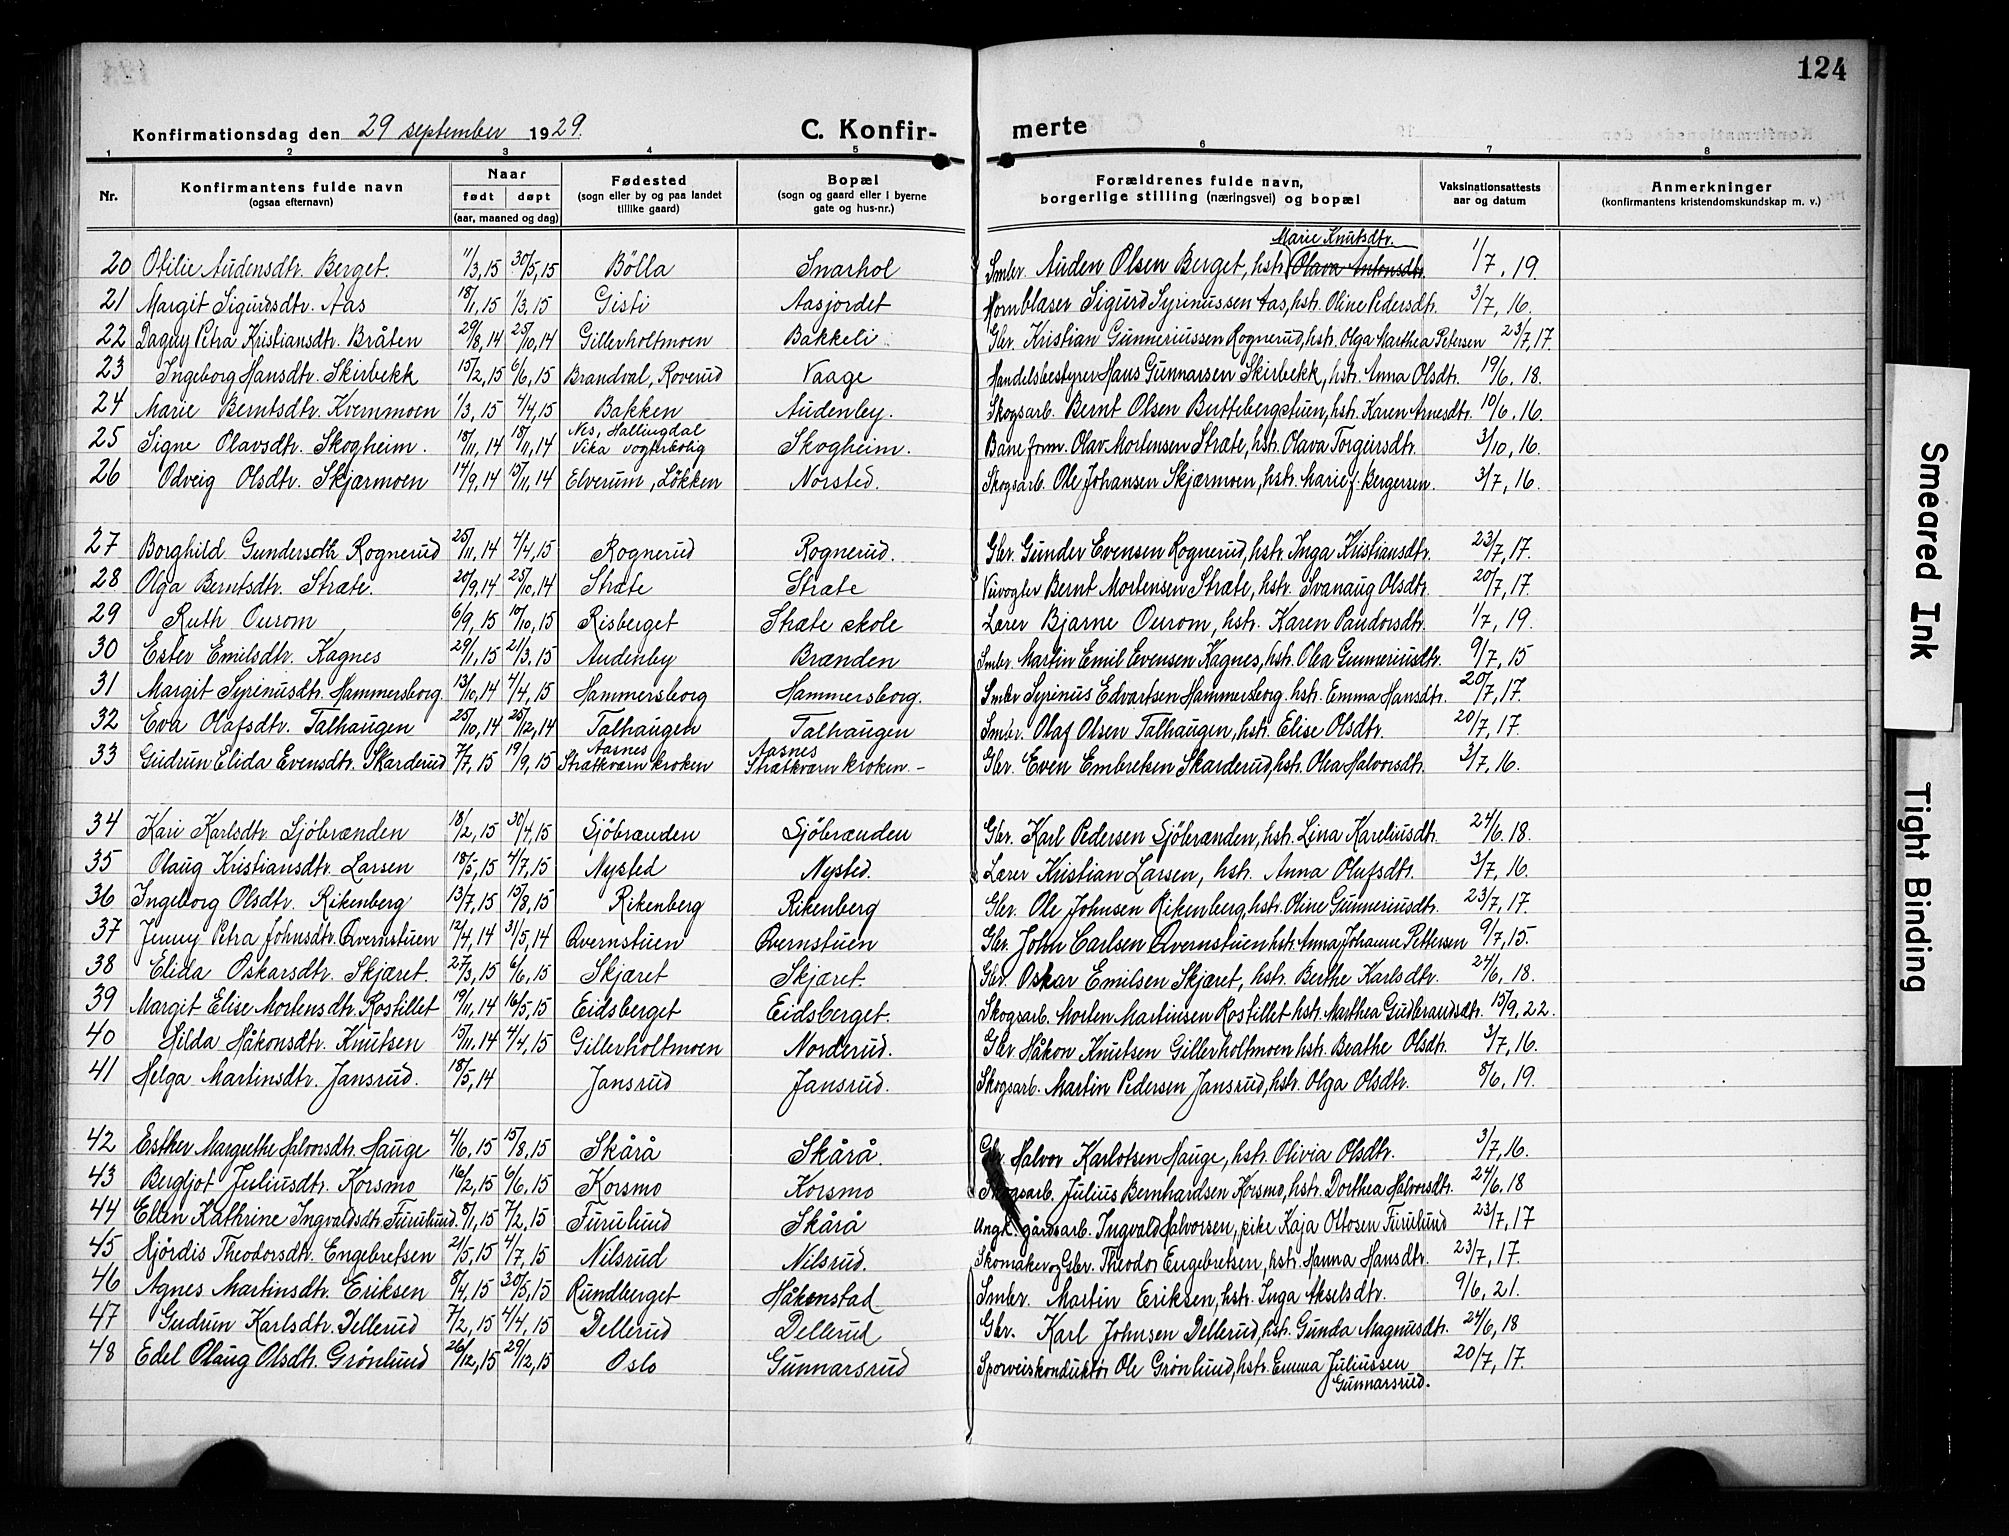 124
Konfirmationsdag den 29 september 1929. C. Konfir- merte
1 2 3 4 5 6 7 8
Nr. Konfirmantens fulde navn (ogsaa efternavn) Naar født døpt (aar, maaned og dag) Fødested (sogn eller by og paa landet tillike gaard) Bopæl (sogn og gaard eller i byerne gate og hus-nr.) Forældrenes fulde navn, borgerlige stilling (næringsvei) og bopæl Vaksinationsattests aar og datum Anmerkninger (konfirmantens kristendomskundskap m. v.)
Marie Knutsdtr.
20 Otilie Audensdtr. Berget. 11/3,15 30/5,15 Bölla Snarhol Smbr. Auden Olsen Berget, hstr. Olava Antonsdtr. 1/7, 19.
21 Margit Sigurdsdtr. Aas 18/1,15 1/3,15 Gisti Aasjordet Hornblaser Sigurd Syrinussen Aas, hstr. Oline Pedersdtr. 3/7, 16.
22 Dagny Petra Kristiansdtr. Bråten 29/8,14 25/10,14 Gillerholtmoen Bakkeli Gbr. Kristian Gunneriussen Rognerud, hstr. Olga Marthea Petersen 23/7,17.
23 Ingeborg Hansdtr. Skirbekk 15/2,15 6/6,15 Brandval, Roverud Vaage Handelsbestyrer Hans Gunnarsen Skirbekk, hstr. Anna Olsdtr. 19/6. 18.
24 Marie Berntsdtr. Kvernmoen 1/3,15 4/4,15 Bakken Audenby. Skogsarb. Bernt Olsen Buttebergstuen, hstr. Karen Arnesdtr. 10/6, 16.
25 Signe Olavsdtr. Skogheim. 18/11,14 18/11,14 Nes, Hallingdal Vika vogterbolig Skogheim. Bane form. Olav Mortensen Stræte, hstr. Olava Torgeirsdtr. 3/10, 16.
26 Odveig Olsdtr. Skjærmoen 14/9,14 15/11,14 Elverum, Løkken Norsted. Skogsarb. Ole Johansen Skjærmoen, hstr. Marie f. Bergersen. 3/7, 16.
27 Borghild Gundersdtr. Rognerud 25/11,14 4/4,15 Rognerud Rognerud. Gbr. Gunder Evensen Rognerud, hstr. Inga Kristiansdtr. 23/7, 17.
28 Olga Berntsdtr. Stræte. 20/9,14 25/10,14 Stræte Stræte Bernt Mortensen Stræte, hstr. Svanaug Olsdtr. 20/7, 17.
29 Ruth Ourom 6/9,15 10/10,15 Risberget Stræte skole Lærer Bjarne Ourom, hstr. Karen Paudorsdtr. 1/7, 19.
30 Ester Emilsdtr. Kagnes 29/1,15 21/3,15 Audenby Brænden Smbr. Martin Emil Evensen Kagnes, hstr. Olea Gunneriusdtr. 9/7, 15
31 Margit Syrinusdtr. Hammersborg 13/10,14 4/4,15 Hammersborg Hammersborg. Smbr. Syrinus Edvartsen Hammersborg, hstr. Emma Hansdtr. 20/7, 17.
32 Eva Olafsdtr. Talhaugen 25/10,14 25/12,14 Talhaugen Talhaugen Smbr. Olaf Olsen Talhaugen, hstr. Elise Olsdtr. 20/7, 17.
33 Gudrun Elida Evensdtr. Skarderud 7/7,15 19/9,15 Aasnes Strætkværn kroken Aasnes Strætkværn kroken.- Gbr. Even Embretsen Skarderud, hstr. Olea Halvorsdtr. 3/7, 16.
34 Kari Karlsdtr. Sjöbrænden 18/2,15 30/4,15 Sjöbrænden Sjöbrænden Gbr. Karl Pedersen Sjöbrænden, hstr. Lina Kareliusdtr. 24/6. 18.
35 Olaug Kristiansdtr. Larsen 18/5,15 4/7,15 Nysted Nysted. Lærer Kristian Larsen, hstr. Anna Olufsdtr. 3/7, 16.
36 Ingeborg Olsdtr. Rikenberg 13/7,15 15/8,15 Rikenberg Rikenberg Gbr. Ole Johnsen Rikenberg, hstr. Oline Gunneriusdtr. 23/7, 17.
37 Jenny Petra Johnsdtr. Qvernstuen 12/4,14 31/5,14 Qvernstuen Qvernstuen Gbr. John Carlsen Qvernstuen hstr. Anna Johanne Pettersen 9/7,15.
38 Elida Oskarsdtr. Skjæret. 27/3,15 6/6,15 Skjæret Skjæret. Gbr. Oskar Emilsen Skjæret, hstr. Berthe Karlsdtr. 24/6, 18.
39 Margit Elise Mortensdtr. Rostillet 19/11,14 16/5,15 Eidsberget Eidsberget. Skogsarb. Morten Martinsen Rostillet hstr. Marthea Gudbrandsdtr. 15/9, 22.
40 Hilda Håkonsdtr. Knutsen 15/11,14 4/4,15 Gillerholtmoen Norderud. Gbr. Håkon Knutsen Gillerholtmoen hstr. Beathe Olsdtr. 3/7, 16.
41 Helga Martinsdtr. Jansrud. 18/5,14 Jansrud Jansrud. Skogsarb. Martin Pedersen Jansrud, hstr. Olga Olsdtr. 8/6, 19.
42 Esther Margrethe Halvorsdtr. Hauge 4/6,15 15/8,15 Skårå Skårå. Gbr. Halvor Karlotsen Hauge, hstr. Olivia Olsdtr. 3/7, 16.
43 Bergljot Juliusdtr. Korsmo 16/2,15 6/6,15 Korsmo Korsmo Skogsarb. Julius Bernhardsen Korsmo, hstr. Dorthea Halvorsdtr. 24/6, 18
44 Ellen Kathrine Ingvaldsdtr. Furulund. 8/1,15 7/2,15 Furulund Skårå Ungk. gårdsarb. Ingvald Halvorsen, pike Kaja Ottosen Furulund 23/7, 17
45 Hjördis Theodorsdtr. Engebretsen 21/5,15 4/7,15 Nilsrud Nilsrud. Skomaker og Gbr. Theodor Engebretsen, hstr. Hanna Hansdtr. 23/7, 17.
46 Agnes Martinsdtr. Eriksen 8/4,15 30/5,15 Rundberget Håkonstad Smbr. Martin Eriksen, hstr. Inga Akselsdtr. 9/6, 21.
47 Gudrun Karlsdtr. Dellerud 7/2,15 4/4,15 Dellerud Dellerud Gbr. Karl Johnsen Dellerud, hstr. Gunda Magnusdtr. 24/6, 18
48 Edel Olaug Olsdtr. Grönlund 26/12,15 29/12,15 Oslo Gunnarsrud Sporveiskonduktör Ole Grönlund, hstr. Emma Juliussen 20/7, 17.
Gunnarsrud.
Smeared Ink
Tight Binding